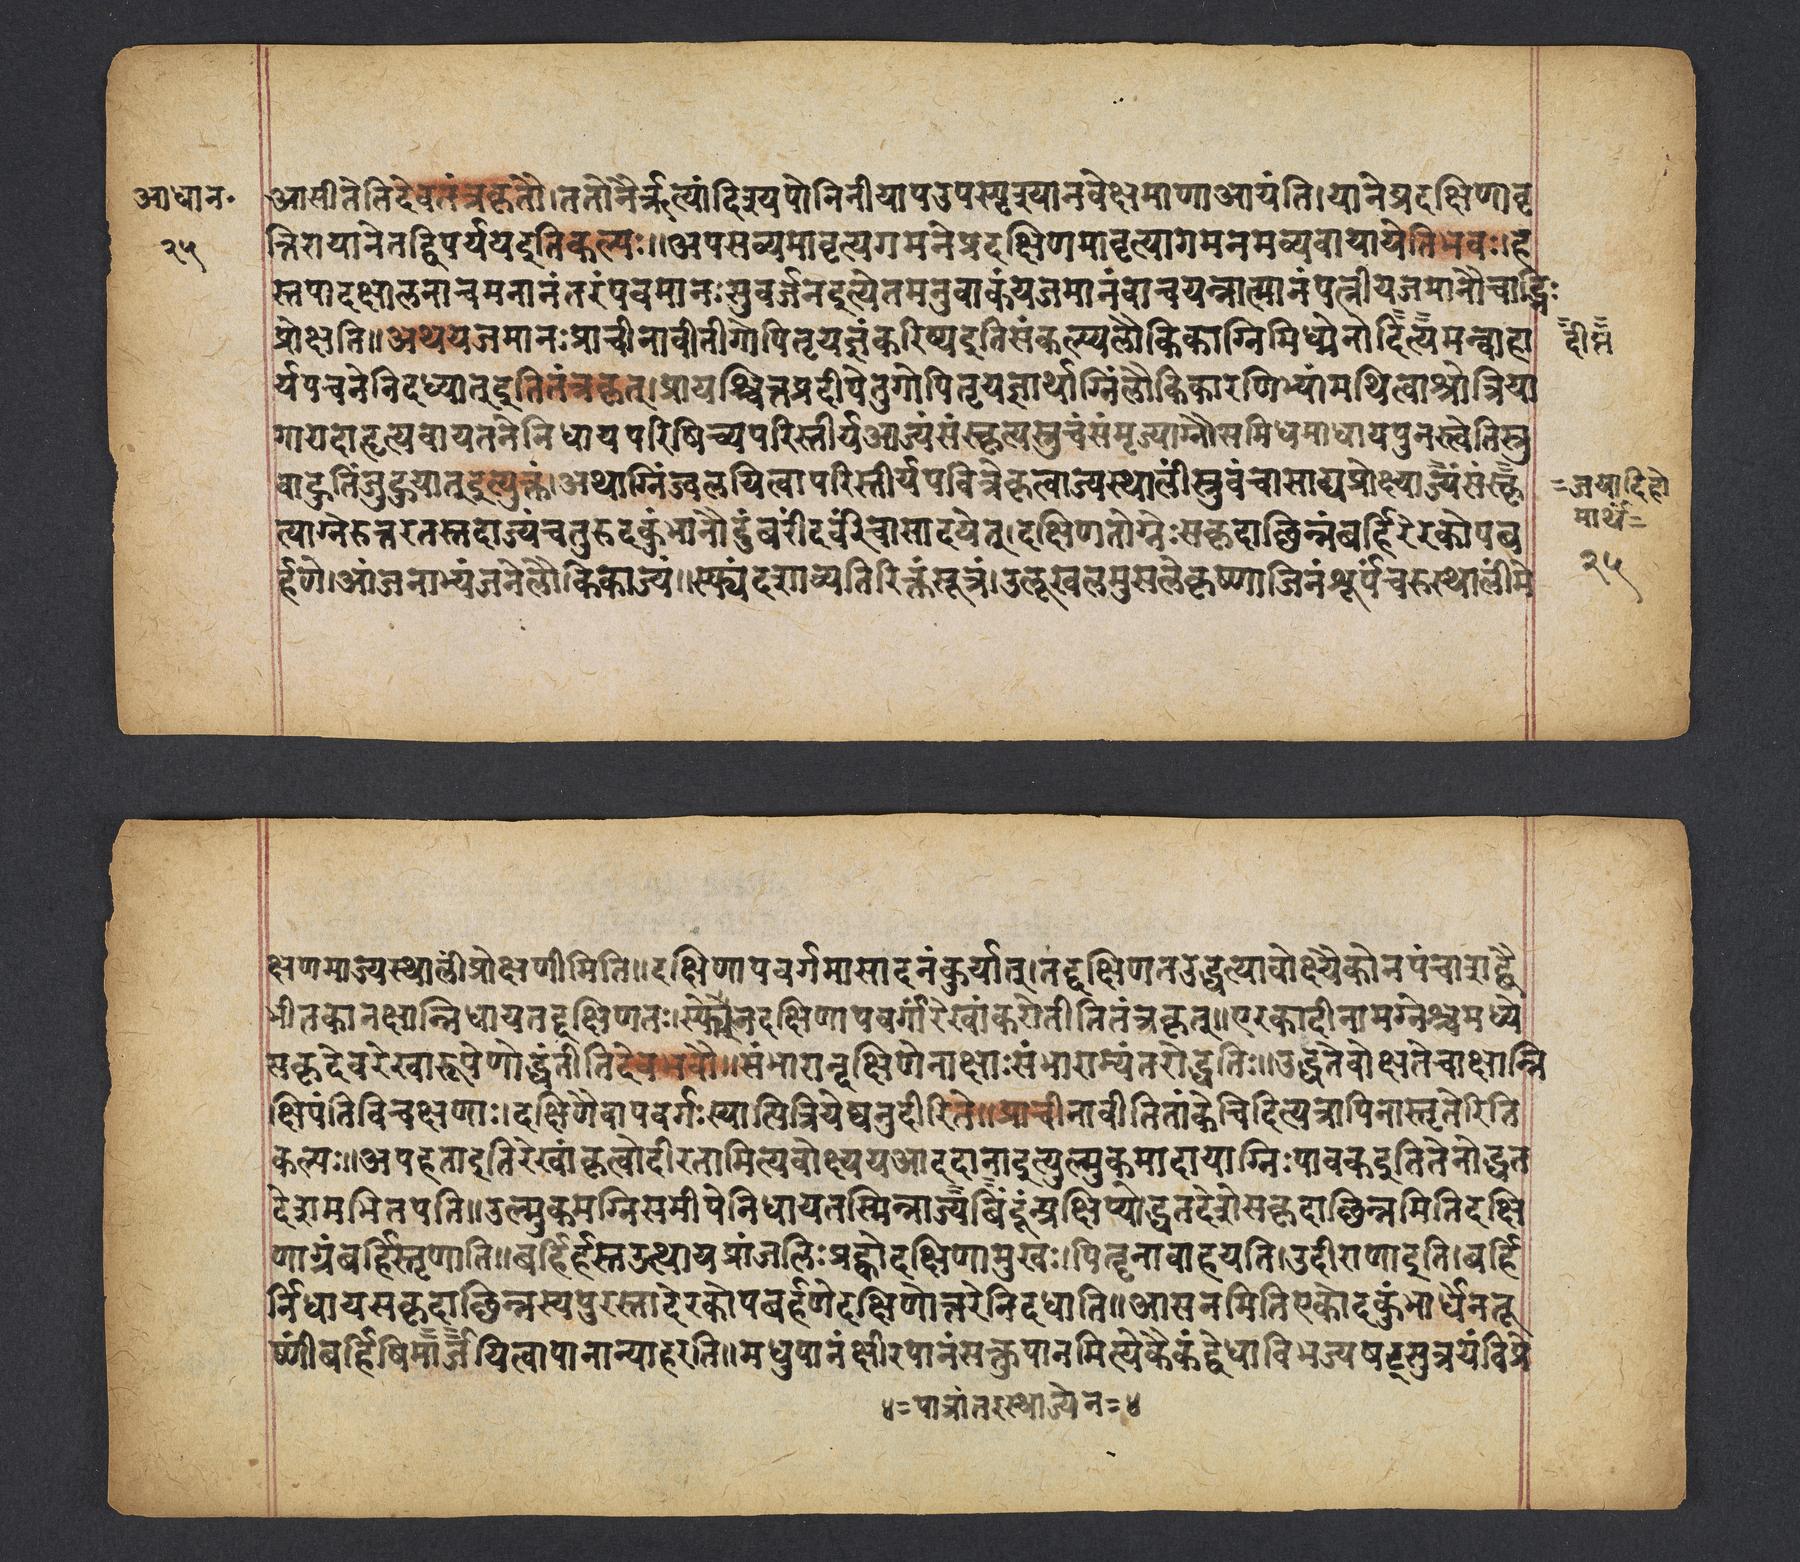 आधान॰
२५
आसीतेतिदेवतंत्रकृतौ।ततोनैर्ऋत्यांदिश्यपोनिनीयापउपस्पृश्यानवेक्षमाणाआयंति।यानेप्रदक्षिणावृ
त्तिरायानेतद्विपर्ययइतिकल्पः॥अपसव्यमावृत्यगमनेप्रदक्षिणमावृत्यागमनमव्यवायायेतिभवः।ह
स्तपादक्षालनाचमनानंतरंपवमानःसुवर्जनइत्येतमनुवाकंयजमानंवाचयन्नात्मानंपत्नीयजमानौचाद्भिः
प्रोक्षति॥अथयजमानःप्राचीनावीतीगोपितृयज्ञंकरिष्यइतिसंकल्प्यलौकिकाग्निमिध्मेनोद्दित्यमन्वाहा
र्यपचनेनिदध्यात्इतितंत्रकृत्।प्रायश्चित्तप्रदीपेतुगोपितृयज्ञार्थाग्निंलौकिकारणिभ्यांमथित्वाश्रोत्रिया
गाराद्वाहृत्यवायतनेनिधायपरिषिच्यपरिस्तीर्यआज्यंसंस्कृत्यस्रुचंसंमृज्याग्नौसमिधमाधायपुनस्त्वेतिस्रु
वाहुतिंजुहुयात्इत्युक्तं।अथाग्निंज्वलयित्वापरिस्तीर्यपवित्रेकृत्वाज्यस्थालींस्रुवंचासाद्यप्रोक्ष्याज्यंसंस्कृ
त्याग्नेरुत्तरतस्तदाज्यंचतुरुदकुंभानौदुंबरींदर्वींचासादयेत्।दक्षिणतोग्नेःसकृदाछिन्नंबर्हिरेरकोपब
र्हणे।आंजनाभ्यंजनेलौकिकाज्यं॥स्फ्यंदशाव्यतिरिक्तंसूत्रं।उलूखलमुसलेकृष्णाजिनंशूर्पंचरुस्थालींमे
=दीप्त=
=जयादिहो
मार्थं=
२५
क्षणमाज्यस्थालींप्रोक्षणीमिति॥दक्षिणापवर्गमासादनंकुर्यात्।तद्दक्षिणतउद्धत्यावोक्ष्यैकोनपंचाशद्वै
भीतकानक्षान्निधायतद्दक्षिणतः।स्फ्येनदक्षिणापवर्गांरेखांकरोतीतितंत्रकृत्॥एरकादीनामग्नेश्चमध्ये
सकृदेवरेखारूपेणोद्धंतीतिदेवभवौ॥संभारान्दक्षिणेनाक्षाःसंभाराभ्यंतरोद्धतिः।।उद्धतेवोक्षतेचाक्षान्नि
क्षिपंतिविचक्षणाः।दक्षिणैवापवर्गःस्यात्पित्रियेष्वनुदीरिते॥प्राचीनावीतितांकेचिदित्यत्रापिनास्तृतेरिति
कल्पः॥अपहताइतिरेखांकृत्वोदीरतामित्यवोक्ष्ययआददानाइत्युल्मुकमादायाग्निःपावकइतितेनोद्धत
देशमभितपति॥उल्मुकमग्निसमीपेनिधायतस्मिन्नाज्यबिंदून्प्रक्षिप्योद्धतदेशेसकृदाछिन्नमितिदक्षि
णाग्रंबर्हिस्तृणाति॥बर्हिर्हस्तउत्थायप्रांजलिःप्रह्वोदक्षिणामुखः।पितॄनावाहयति।उदीराणाइति।बर्हि
र्निधायसकृदाछिन्नस्यपुरस्तादेरकोपबर्हणेदक्षिणोत्तरेनिदधाति॥आसनमितिएकोदकुंभार्धेनतू
ष्णींबर्हिषिमार्जयित्वापानान्याहरति॥मधुपानंक्षीरपानंसक्तुपानमित्येकैकंद्वेधाविभज्यषट्सुत्रयंविप्रे
४=पात्रांतरस्थाज्येन=४